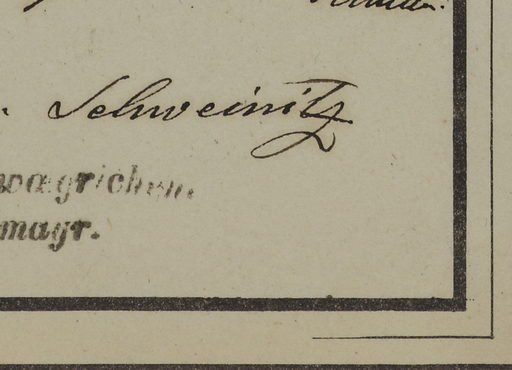 Schweinitz
wægrichen.
magr.